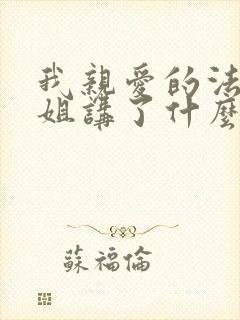 我親愛的法
姐講了什麼
蘇福倫